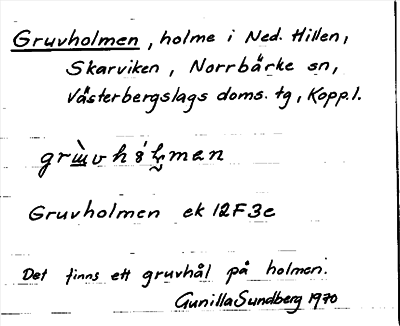 Gruvholmen, holme i Ned. Hillen,
Skarviken, Norrbärke sn,
Västerbergslags doms. tg, Kopp.l.
Gruvholmen ek 12F3e
Det finns ett gruvhål på holmen.
Gunilla Sundberg 1970